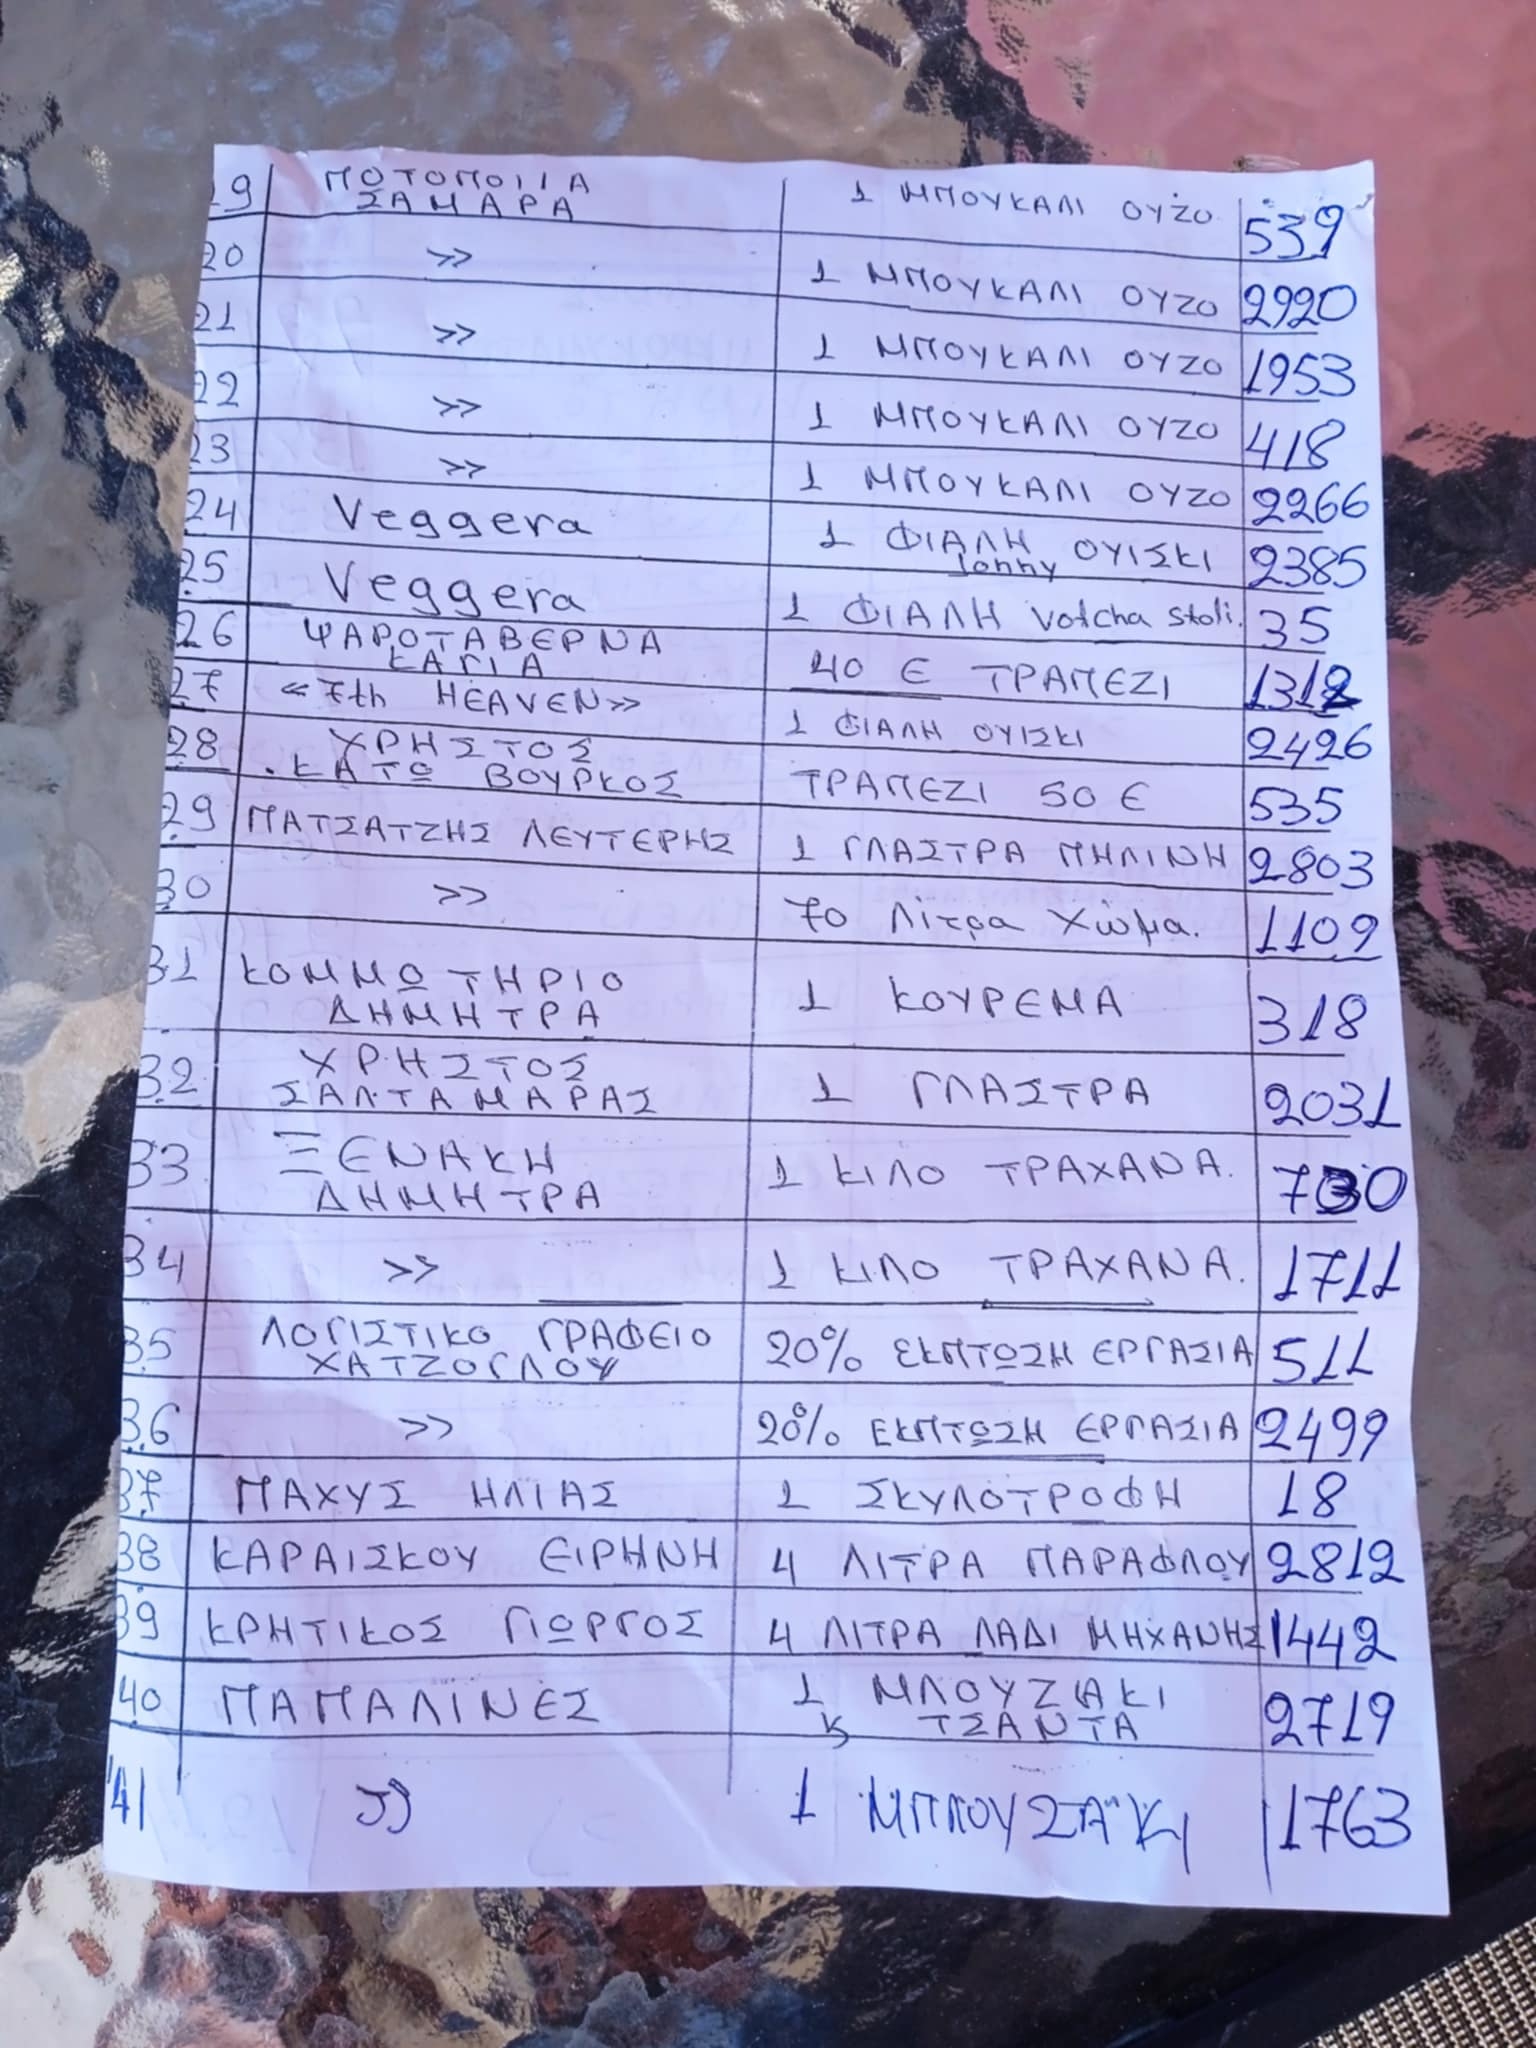 19 ΠΟΤΟΠΟΙΙΑ ΣΑΜΑΡΑ 1 ΜΠΟΥΚΑΛΙ ΟΥΖΟ 539
20 >> 1 ΜΠΟΥΚΑΛΙ ΟΥΖΟ 2920
21 >> 1 ΜΠΟΥΚΑΛΙ ΟΥΖΟ 1953
22 >> 1 ΜΠΟΥΚΑΛΙ ΟΥΖΟ 418
23 >> 1 ΜΠΟΥΚΑΛΙ ΟΥΖΟ 2266
24 Veggera 1 ΦΙΑΛΗ ΟΥΙΣΚΙ Jonny 2385
25 Veggera 1 ΦΙΑΛΗ Votcha Stoli. 35
26 ΨΑΡΟΤΑΒΕΡΝΑ ΚΑΓΙΑ 40 € ΤΡΑΠΕΖΙ 1312
27 «7th HEAVEN» 1 ΦΙΑΛΗ ΟΥΙΣΚΙ 2426
28 ΧΡΗΣΤΟΣ ΚΑΤΩ ΒΟΥΡΚΟΣ ΤΡΑΠΕΖΙ 50 € 535
29 ΠΑΤΣΑΤΖΗΣ ΛΕΥΤΕΡΗΣ 1 ΓΛΑΣΤΡΑ ΠΗΛΙΝΗ 2803
30 >> 70 Λίτρα Χώμα. 1109
31 ΚΟΜΜΩΤΗΡΙΟ ΔΗΜΗΤΡΑ 1 ΚΟΥΡΕΜΑ 318
32 ΧΡΗΣΤΟΣ ΣΑΛΤΑΜΑΡΑΣ 1 ΓΛΑΣΤΡΑ 2031
33 ΞΕΝΑΚΗ ΔΗΜΗΤΡΑ 1 ΚΙΛΟ ΤΡΑΧΑΝΑ.
34 >> 1 ΚΙΛΟ ΤΡΑΧΑΝΑ. 1711
35 ΛΟΓΙΣΤΙΚΟ ΓΡΑΦΕΙΟ ΧΑΤΖΟΓΛΟΥ 20% ΕΚΠΤΩΣΗ ΕΡΓΑΣΙΑ 511
36 >> 20% ΕΚΠΤΩΣΗ ΕΡΓΑΣΙΑ 2499
37 ΠΑΧΥΣ ΗΛΙΑΣ 1 ΣΚΥΛΟΤΡΟΦΗ 18
38 ΚΑΡΑΙΣΚΟΥ ΕΙΡΗΝΗ 4 ΛΙΤΡΑ ΠΑΡΑΦΛΟΥ 2812
39 ΚΡΗΤΙΚΟΣ ΓΙΩΡΓΟΣ 4 ΛΙΤΡΑ ΛΑΔΙ ΜΗΧΑΝΗΣ 1442
40 ΠΑΠΑΛΙΝΕΣ 1 ΜΛΟΥΖΑΚΙ Κ ΤΣΑΝΤΑ 2719
41 >> 1 ΜΠΛΟΥΖΑΚΙ 1763